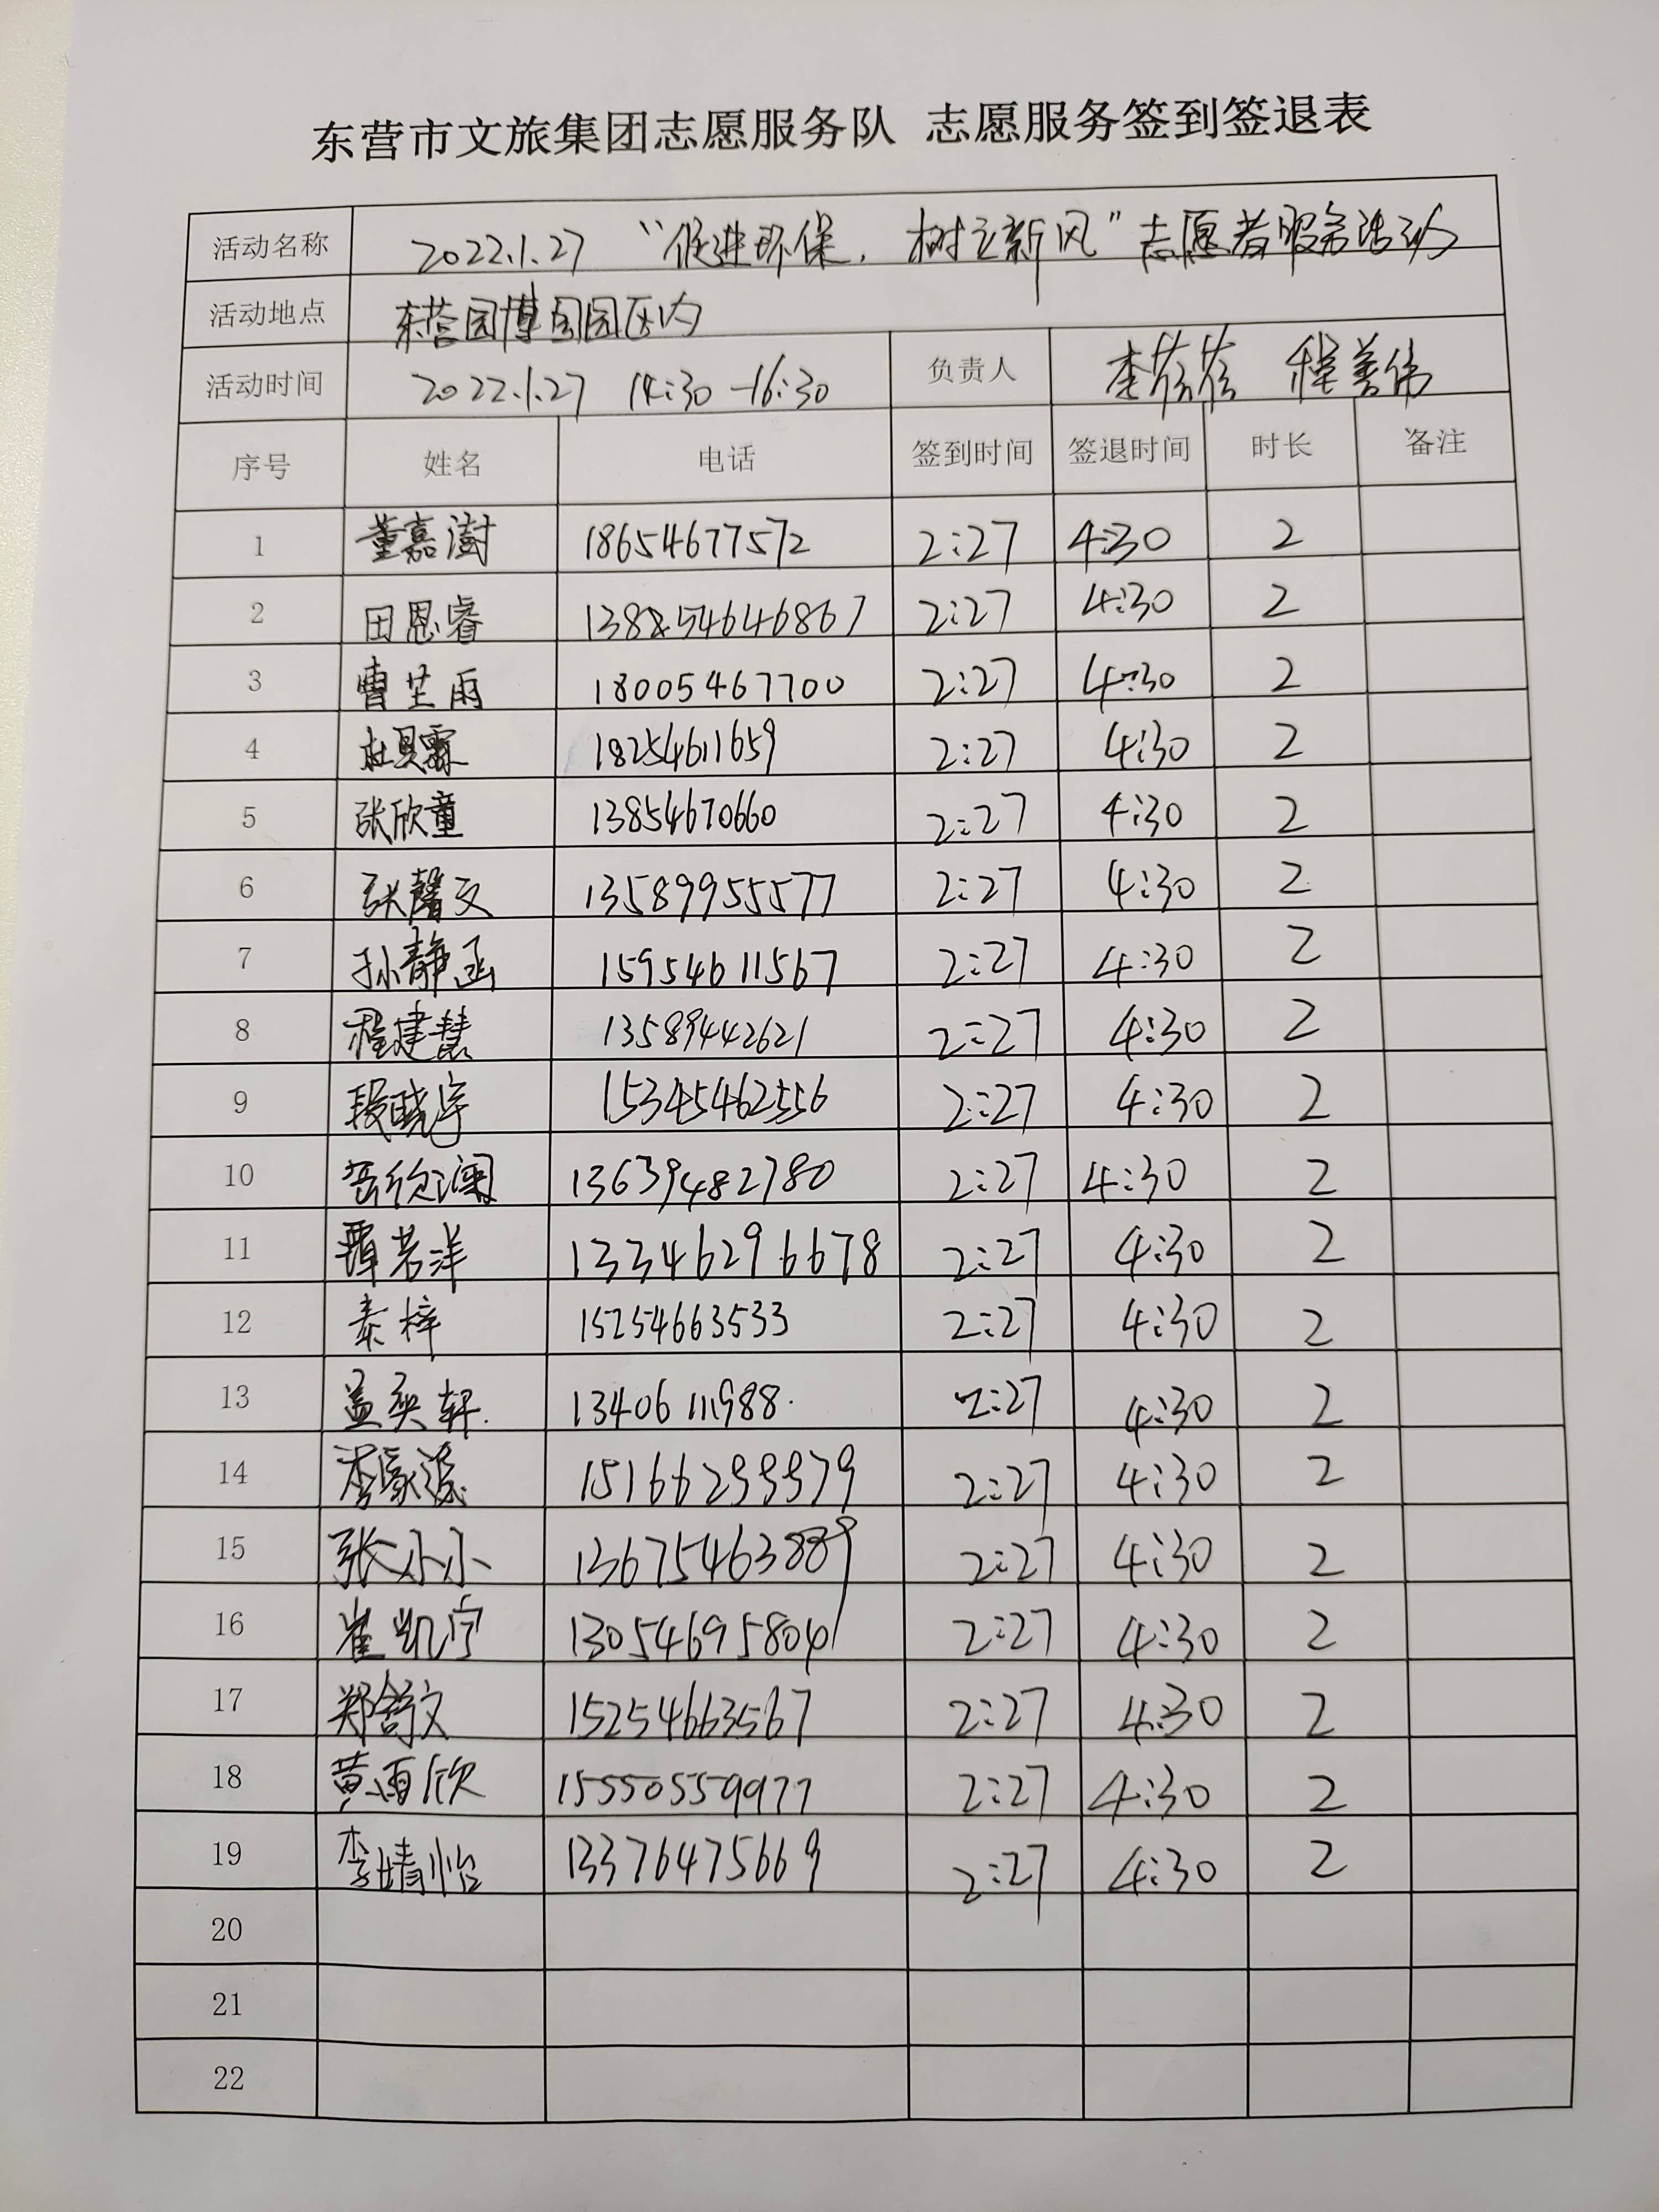 东营市文旅集团志愿服务队 志愿服务签到签退表
活动名称 2022.1.27 “促进环保，树立新风”志愿者服务活动
活动地点 东营园博园园区内
活动时间 2022.1.27 14:30-16:30 负责人 李蓓蓓 程善伟
序号 姓名 电话 签到时间 签退时间 时长 备注
1 董嘉澍 18654677572 2:27 4:30 2
2 田恩睿 138854646867 2:27 4:30 2
3 曹芷雨 18005467700 2:27 4:30 2
4 杜贝霖 18254611659 2:27 4:30 2
5 张欣童 13854670660 2:27 4:30 2
6 张馨文 13589955577 2:27 4:30 2
7 孙静涵 15954611567 2:27 4:30 2
8 程建慧 13589442621 2:27 4:30 2
9 段晓宇 15345462556 2:27 4:30 2
10 苔欣澜 13639482780 2:27 4:30 2
11 覃若洋 13346296678 2:27 4:30 2
12 秦梓 15254663533 2:27 4:30 2
13 盖奕轩 13406111988 2:27 4:30 2
14 李家 2:27 4:30 2
15 张小小 13675463889 2:27 4:30 2
16 崔凯宁 2:27 4:30 2
17 郑舒文 15254663567 2:27 4:30 2
18 黄雨欣 15550559977 2:27 4:30 2
19 李婧怡 13376475669 2:27 4:30 2
20
21
22